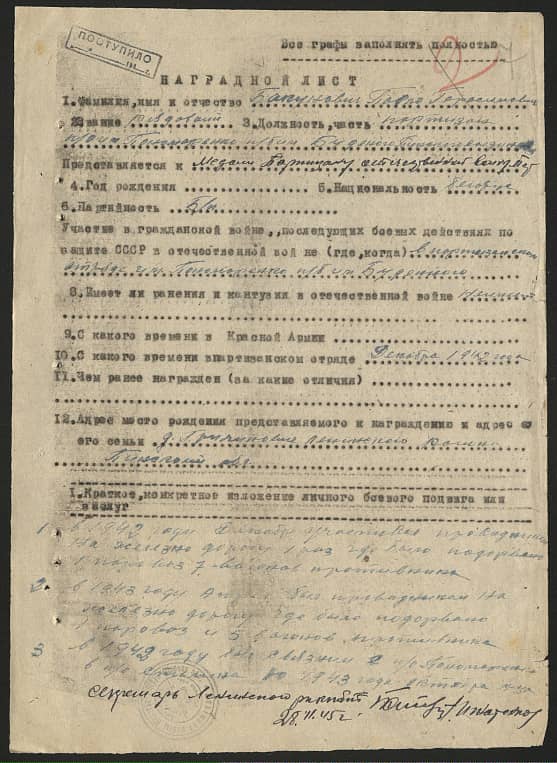 ПОСТУПИЛО
Все графы заполнять полностью
2
НАГРАДНОЙ ЛИСТ
1. Фамилия, имя и отчество Бакунович
звание рядовой 3. Должность, часть партизан
Представляется к Медали Партизану отечественной войны
4. Год рождения 5. Национальность белорус
6. Партийность б/п
Участие в гражданской войне,, последующих боевых действиях по
защите СССР в отечественной вой не (где, когда) в партизанском
отряде им. Пономаренко п/б им. Буденного
8. Имеет ли ранения и кантузии в отечественной войне не имеет
9. С какого времени в Красной Армии
10. С какого времени впартизанском отряде Декабря 1942 года
11. Чем ранее награжден (за какие отличия)
12. Адрес место рождения представляемого к награждению и адрес
его семьи д. Ленинского
Пинской обл.
1. Краткое, конкретное изложение личного боевого подвига или
заслуг
1 в 1942 году Декабре участвовал
На железную дорогу 1 раз где было подорвано
1 паровоз 7 вагонов противника
2 в 1943 году был проводником на
железную дорогу где было подорвано
1 паровоз и 5 вагонов противника
3 в 1942 году был связным с п/о Пономаренко
1943 года октября
Секретарь Ленинского
28.II.45 г.